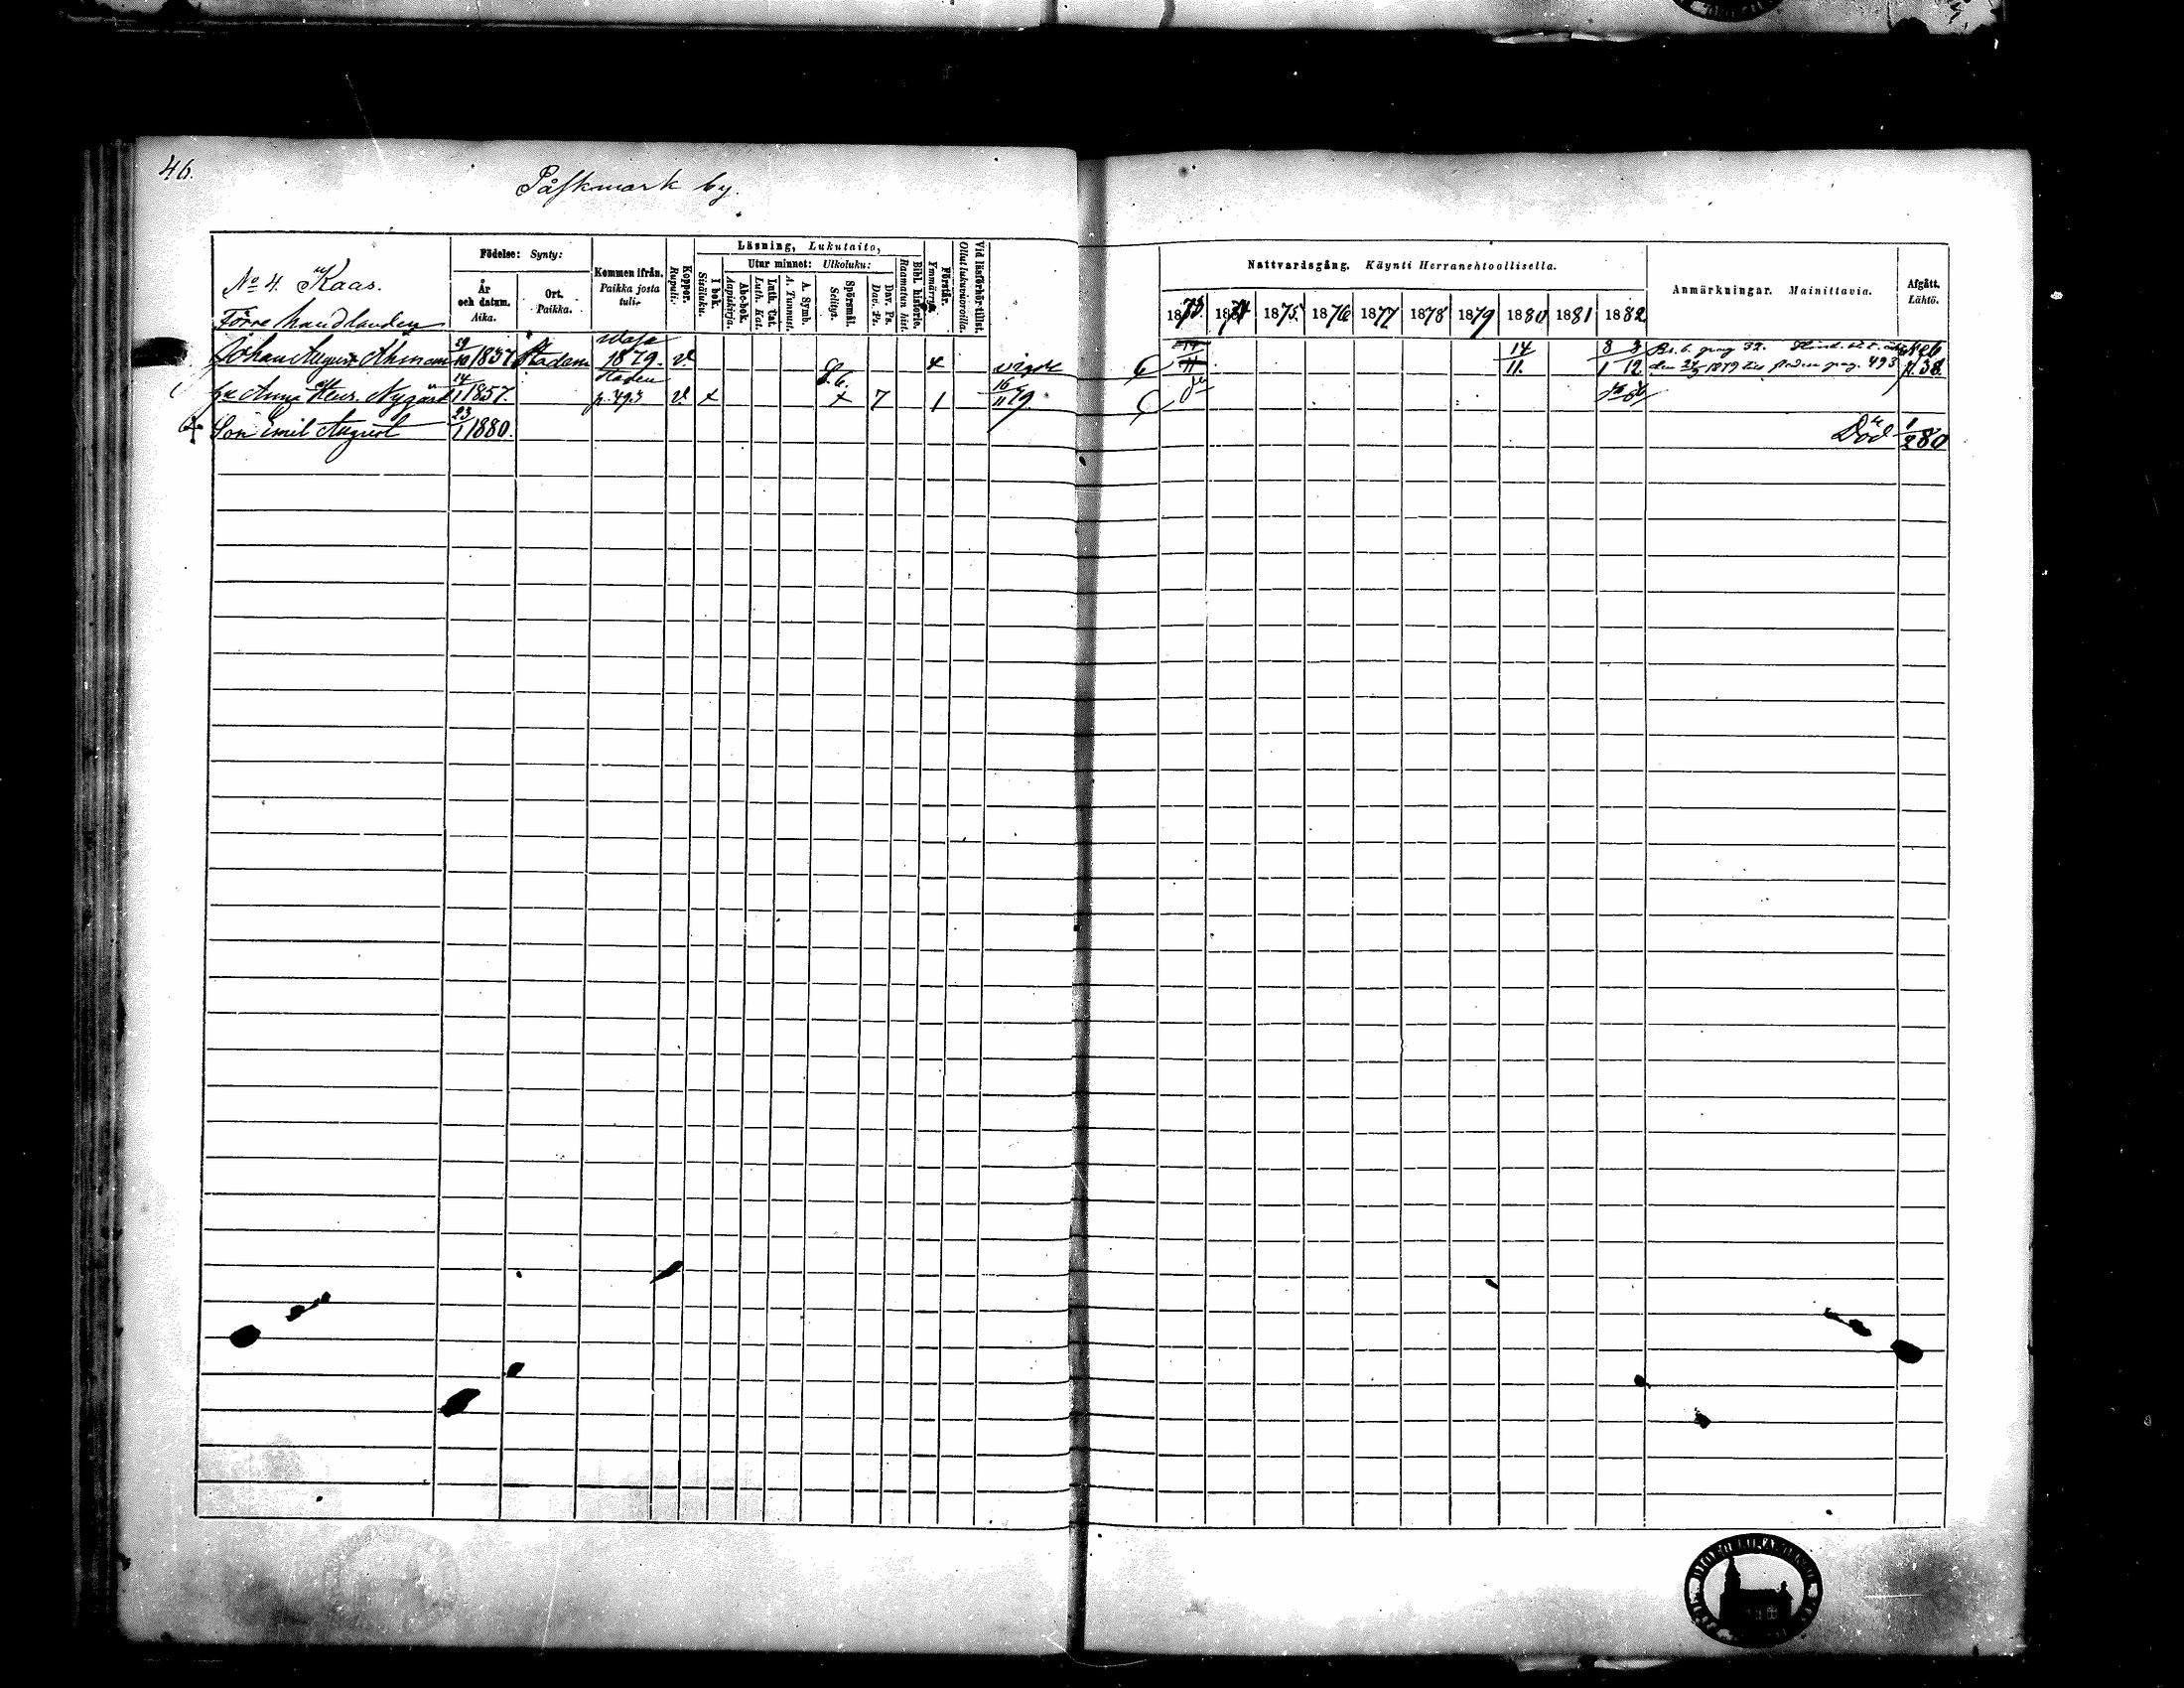 46.
Påskmark by.
No 4. Kaas.
Förre handlanden
Födelse: Synty:
År och datum. Aika.
Ort. Paikka.
Kommen ifrån. Paikka josta tuli.
Koppor. Rupuli.
Läsning, Lukutaito,
I bok. Sisäluku.
Utur minnet: Ulkoluku:
Abc-bok. Aapiskirja.
Luth. Cat. Luth. Kat.
A. Symb. A. Tunnust.
Spörsmål. Selitys.
Dav. Ps. Dav. Ps.
Bibl. historie. Raamatun hist.
Förstår. Ymmärrys.
Vid läsförhör tillst. Ollut lukuvuoroilla.
Nattvardsgång. Käynti Herranehtoollisella.
1873 1874 1875 1876 1877 1878 1879 1880 1881 1882
Anmärkningar. Mainittavia.
Afgått. Lähtö.
Johan August Åhman 29/10 1857 Staden Wasa 1879. v. 14/11 8/1 3/12 Bs. b. pag 32.
den 1879 pag. 493 p. 38
Anna Henr. Nygård 14/1 1857. Staden p. 493 v. x S.b. x 7 1 vigde 16/11 79
Son Emil August 23/1 1880. Död 1/2 80